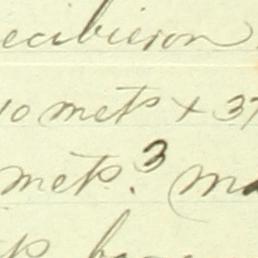 recibieron
10 mets + 37
mets.3 ma